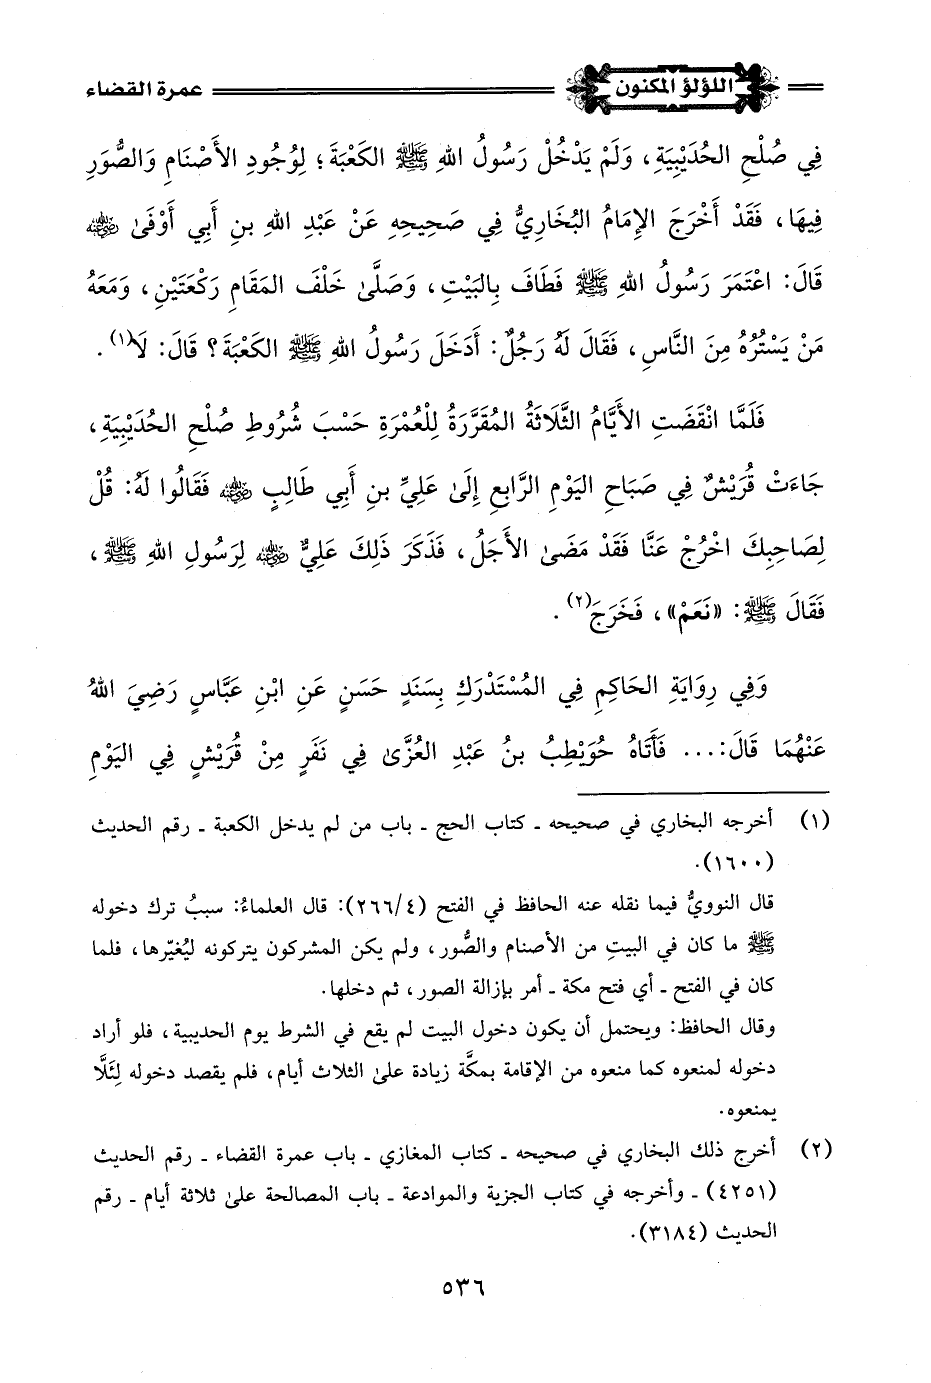 اللؤلؤ المكنون
عمرة القضاء
فِي صُلْحِ الحُدَيْبِيَةِ، وَلَمْ يَدْخُلْ رَسُولُ اللهِ ﷺ الكَعْبَةَ؛ لِوُجُودِ الأَصْنَامِ وَالصُّوَرِ
فِيهَا، فَقَدْ أَخْرَجَ الإِمَامُ البُخَارِيُّ فِي صَحِيحِهِ عَنْ عَبْدِ اللهِ بنِ أَبِي أَوْفَىٰ رضي الله عنه
قَالَ: اعْتَمَرَ رَسُولُ اللهِ ﷺ فَطَافَ بِالبَيْتِ، وَصَلَّىٰ خَلْفَ المَقَامِ رَكْعَتَيْنِ، وَمَعَهُ
مَنْ يَسْتُرُهُ مِنَ النَّاسِ، فَقَالَ لَهُ رَجُلٌ: أَدَخَلَ رَسُولُ اللهِ ﷺ الكَعْبَةَ؟ قَالَ: لَا(١).
فَلَمَّا انْقَضَتِ الأَيَّامُ الثَّلَاثَةُ المُقَرَّرَةُ لِلْعُمْرَةِ حَسْبَ شُرُوطِ صُلْحِ الحُدَيْبِيَةِ،
جَاءَتْ قُرَيْشٌ فِي صَبَاحِ اليَوْمِ الرَّابِعِ إِلَىٰ عَلِيِّ بنِ أَبِي طَالِبٍ رضي الله عنه فَقَالُوا لَهُ: قُلْ
لِصَاحِبِكَ اخْرُجْ عَنَّا فَقَدْ مَضَىٰ الأَجَلُ، فَذَكَرَ ذَلِكَ عَلِيٌّ رضي الله عنه لِرَسُولِ اللهِ ﷺ،
فَقَالَ ﷺ: «نَعَمْ»، فَخَرَجَ(٢).
وَفِي رِوَايَةِ الحَاكِمِ فِي المُسْتَدْرَكِ بِسَنَدٍ حَسَنٍ عَنِ ابْنِ عَبَّاسٍ رَضِيَ اللهُ
عَنْهُمَا قَالَ:... فَأَتَاهُ حُوَيْطِبُ بنُ عَبْدِ العُزَّىٰ فِي نَفَرٍ مِنْ قُرَيْشٍ فِي اليَوْمِ
(١) أخرجه البخاري في صحيحه ـ كتاب الحج ـ باب من لم يدخل الكعبة ـ رقم الحديث
(١٦٠٠).
قال النوويُّ فيما نقله عنه الحافظ في الفتح (٢٦٦/٤): قال العلماءُ: سببُ ترك دخوله
ﷺ ما كان في البيتِ من الأصنام والصُّور، ولم يكن المشركون يتركونه ليُغيّرها، فلما
كان في الفتح ـ أي فتح مكة ـ أمر بإزالة الصور، ثم دخلها.
وقال الحافظ: ويحتمل أن يكون دخول البيت لم يقع في الشرط يوم الحديبية، فلو أراد
دخوله لمنعوه كما منعوه من الإقامة بمكَّة زيادة علىٰ الثلاث أيام، فلم يقصد دخوله لِئَلَّا
يمنعوه.
(٢) أخرج ذلك البخاري في صحيحه ـ كتاب المغازي ـ باب عمرة القضاء ـ رقم الحديث
(٤٢٥١) ـ وأخرجه في كتاب الجزية والموادعة ـ باب المصالحة علىٰ ثلاثة أيام ـ رقم
الحديث (٣١٨٤).
٥٣٦